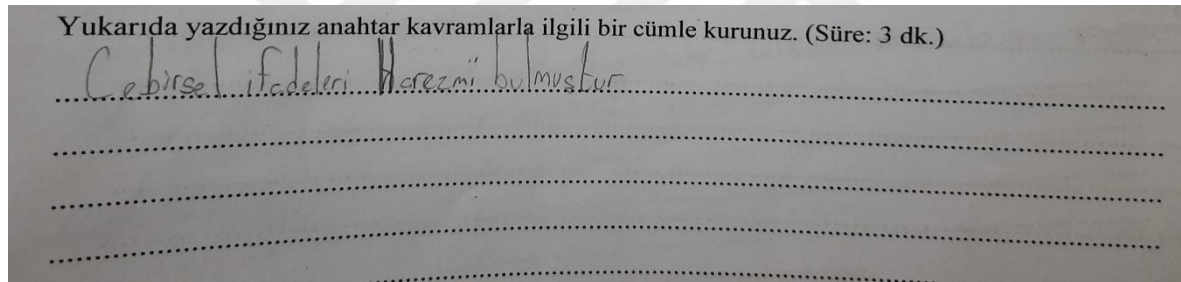 Yukarıda yazdığınız anahtar kavramlarla ilgili bir cümle kurunuz. (Süre: 3 dk.)
Cebirsel ifadeleri Harezmi bulmuştur.